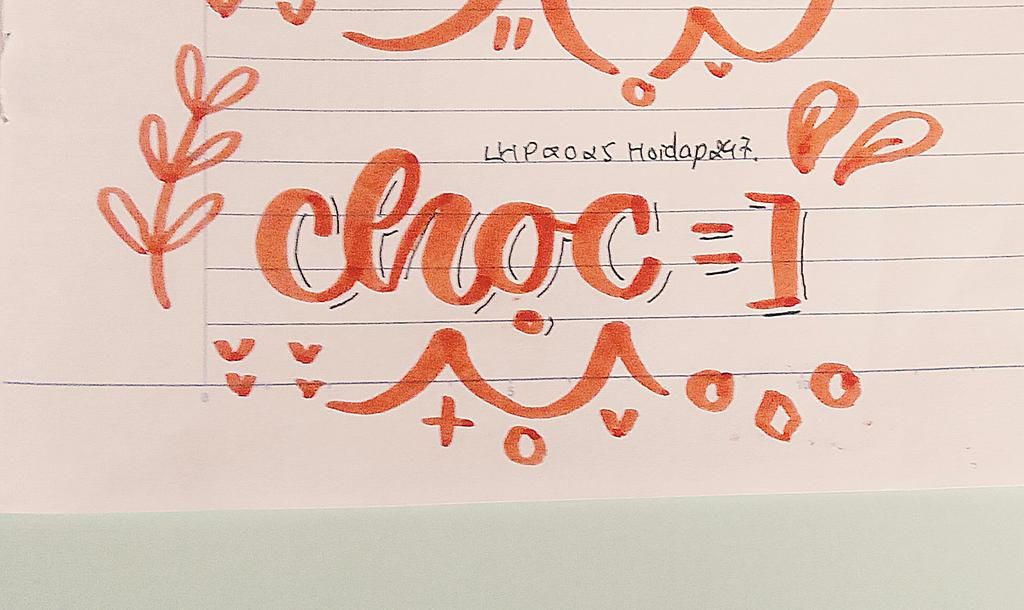 LHP2025 Hoidap247.
chọc =]